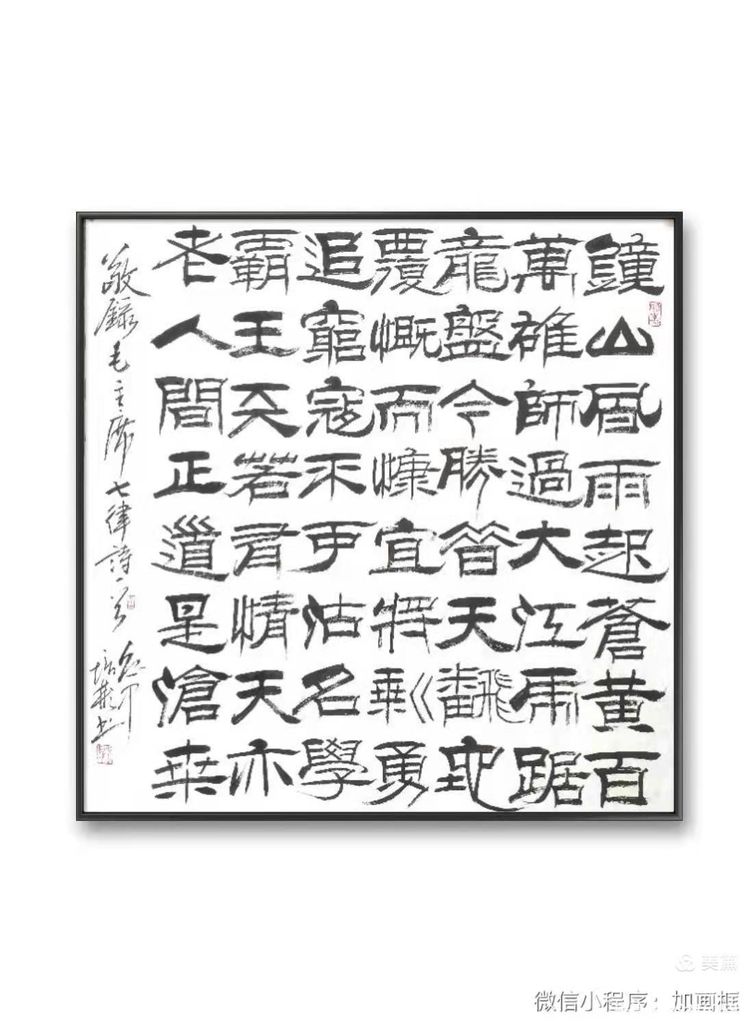 鐘山風雨起蒼黃百
萬雄師過大江虎踞
龍盤今勝昔天飜地
覆慨而慷宜將剩勇
追窮寇不可沽名學
霸王天若有情天亦
老人間正道是滄桒
敬錄毛主席七律詩一首
美篇
微信小程序：加画框